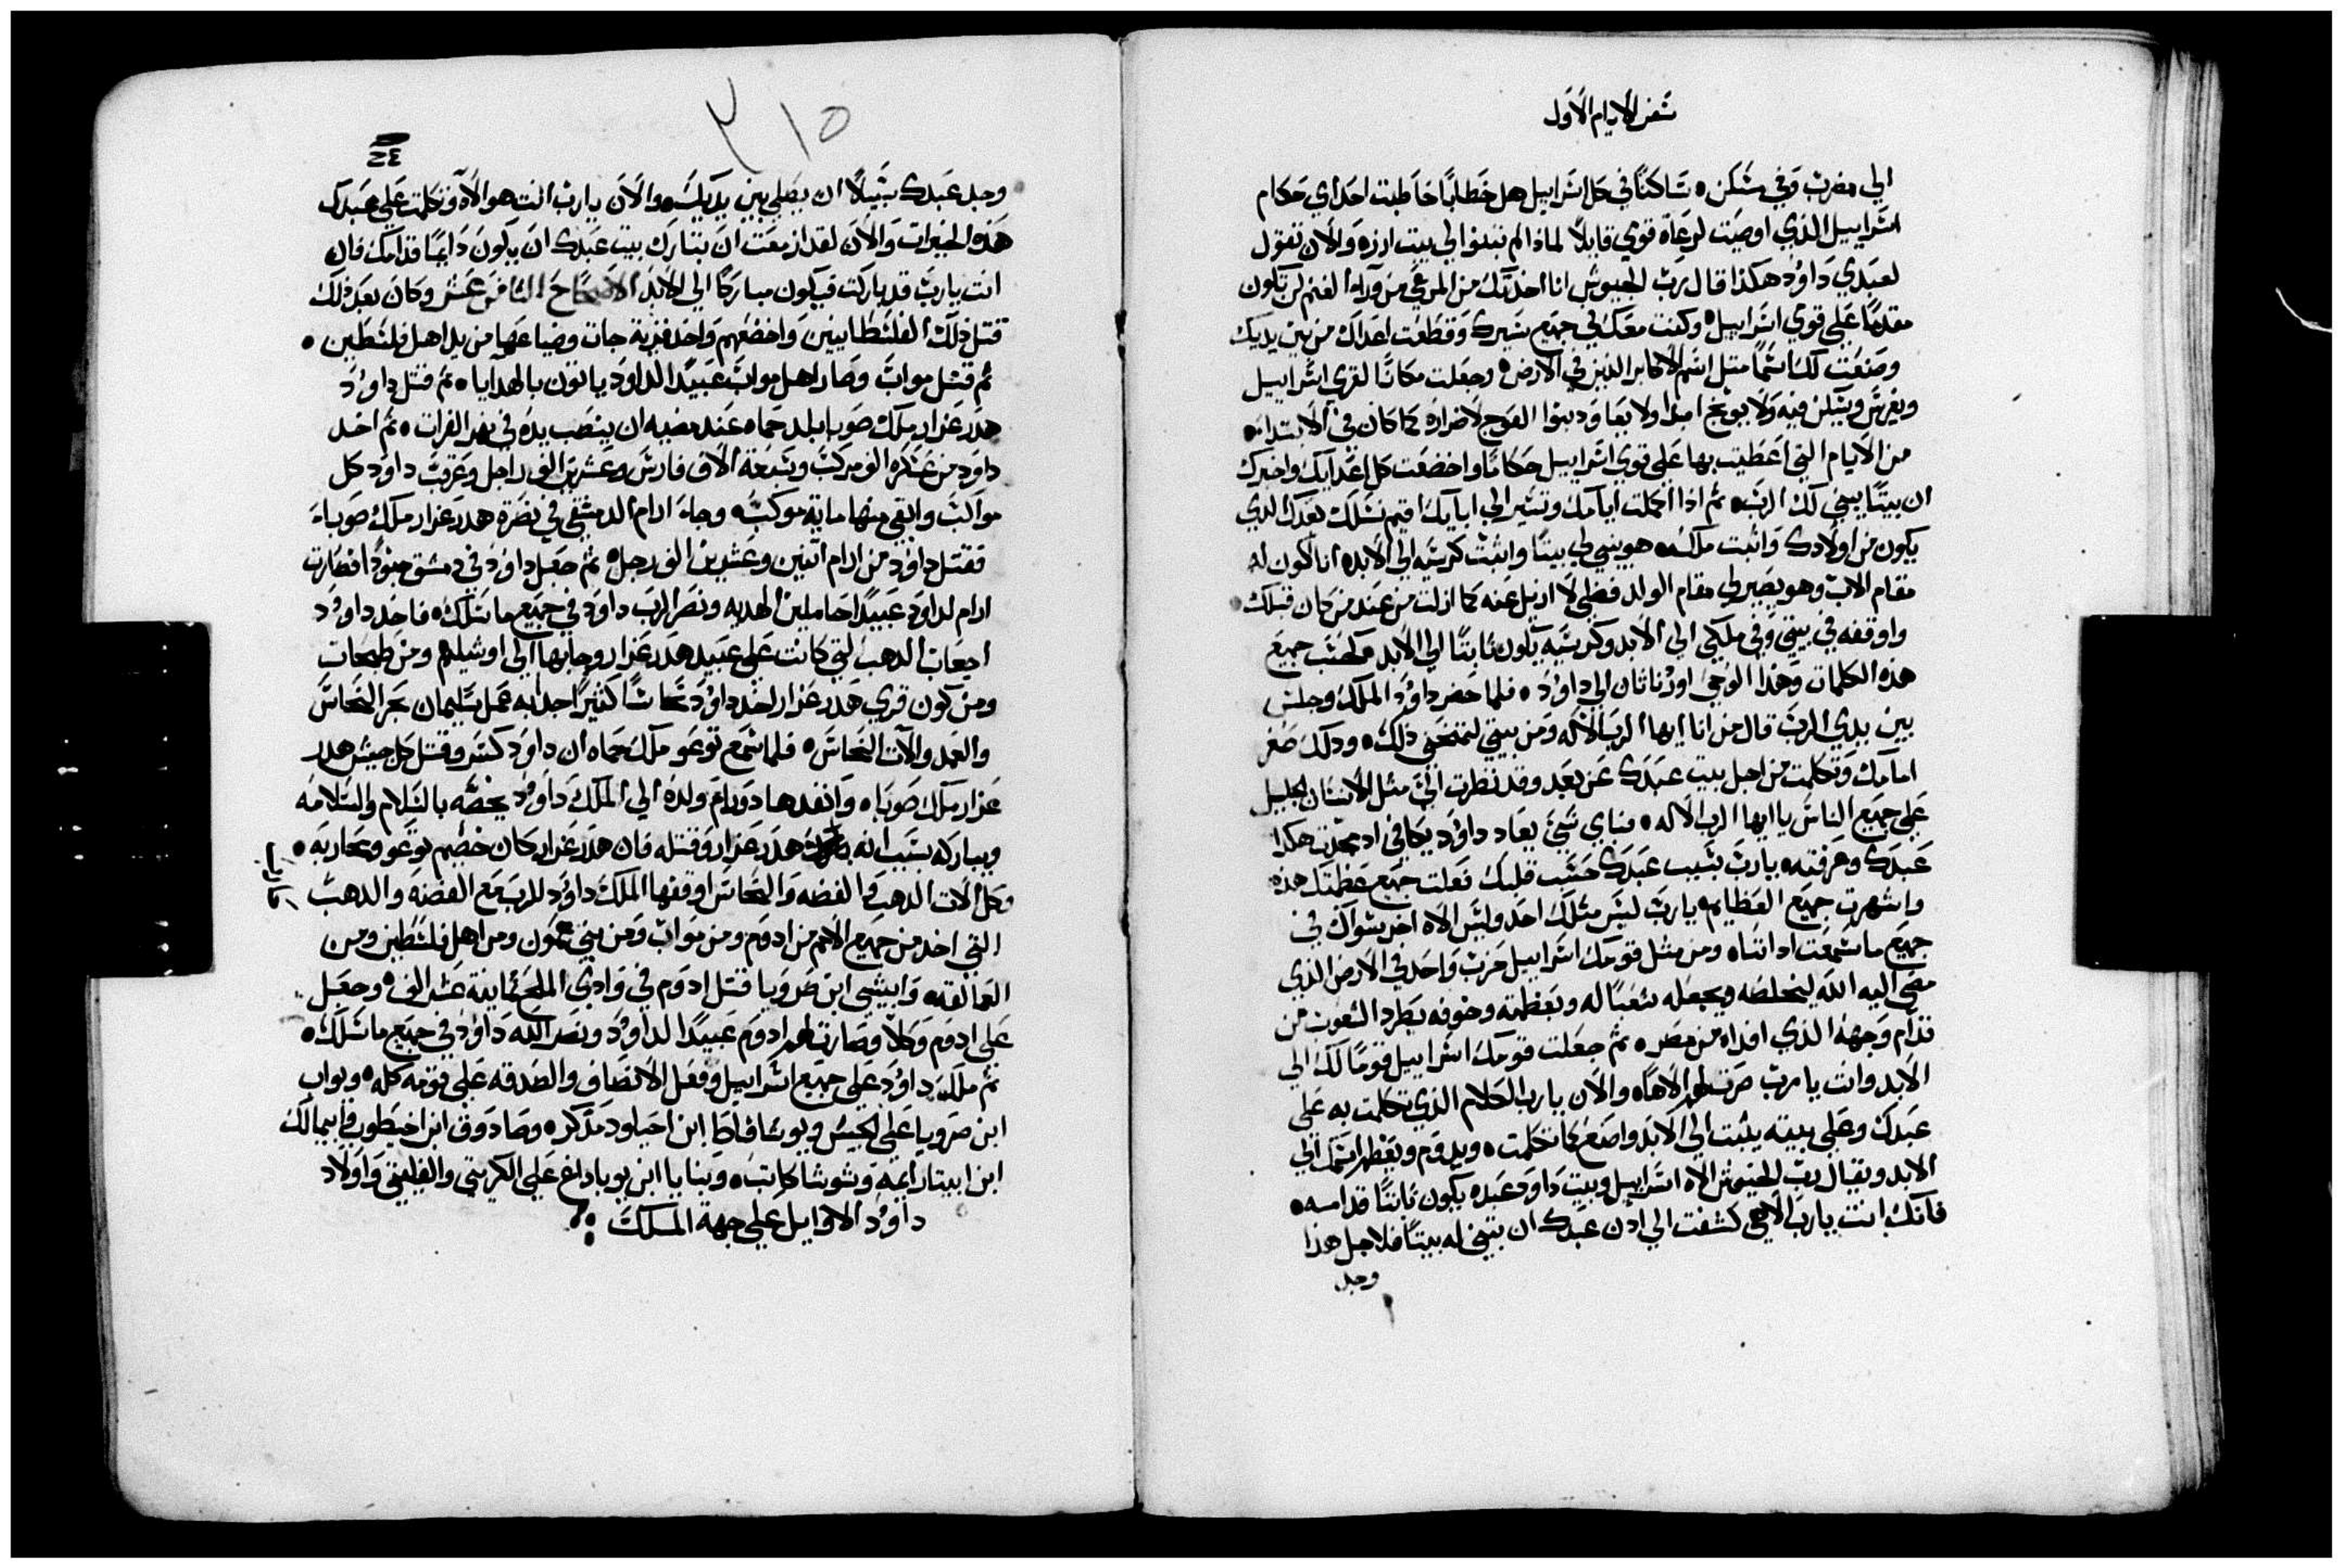 سفر الايام الاول
الي مضرب وفي مسكن ه ساكنًا في كل اسراييل هل خطابًا خاطبت احد اي حكام
اسراييل الذي اوصيت لرعاة قومي قايلاً لماذا لم تبنوا لي بيت ارزه والان تقول
لعبدي داوُد هكذا قال رب الجيوش انا اخدتك من المرعي من ورا الغنم لن تكون
مقدمًا علي قومي اسراييل ه وكنت معك في جميع سيرك وقطعت اعداك من بين يديك
وصنعت لك اسمًا مثل اسم الاكابر الذين في الارض ه وجعلت مكانًا لقومي اسراييل
ويغرس ويسكن فيه ولا يوبخ ابدا ولا يعاود بنوا العوج لاضراره كما كان في الابتداء ه
من الايام التي اعطيت بها علي قومي اسراييل حكامًا واخضعت كل اعدايك واخبرك
ان بيتًا يبني لك الرب ه ثم اذا اكملت ايامك وتسير الي ابايك اقيم نسلك بعدك الدي
يكون من اولادك واثبت ملكه ه هو يبني لي بيتًا واثبت كرسيه الي الابد ه انا اكون له
مقام الاب وهو يصير لي مقام الولد فضلي لا ازيل عنه كما ازلت من عند من كان قبلك ه
واوقفه في بيتي وفي ملكي الي الابد وكرسيه يكون ثابتًا الي الابد ه كحسب جميع
هذه الكلمات وهذا الوحي اورد ناثان الي داوُد ه فلما حضر داوُد الملك وجلس
بين يدي الرب قال من انا ايها الرب الاله ومن بيتي لتمنحني ذلك ه ودلك صغر
امامك وتكلمت من اجل بيت عبدك عن بعد وقد نظرت الي مثل الانسان الجليل
علي جميع الناس يا ايها الرب الاله ه فباي شي يعاد داوُد يكافي اد مجدت هكدا
عبدك وعرفته ه يارب بسبب عبدك حسب قلبك فعلت جميع عظمتك هذه
واشهرت جميع العظايم ه يارب ليس مثلك احد وليس الاه اخر سواك في
جميع ما سمعت اداننا ه ومن مثل قومك اسراييل حزب واحد في الارض الذي
مضي اليه الله ليخلصه ويجعله شعبًا له وبعظمته وخوفه يطرد الشعوب من
قدام وجهه الذي افداه من مصر ه ثم جعلت قومك اسراييل قومًا لك الي
الابد وانت يا رب صرت لهم الاهًا ه والان يا رب الكلام الذي تكلمت به علي
عبدك وعلي بيته يثبت الي الابد واصنع كما تكلمت ه ويدوم ويعظم اسمك الي
الابد ويقال رب الجيوش الاه اسراييل وبيت داود عبده يكون ثابتًا قدامه ه
فانك انت يا رب الاهي كشفت الي ادن عبدك ان تبني له بيتًا فلاجل هذا
وجد
٣١٥
وجد عبدك سبيلاً ان يصلي بين يديك ه والان يا رب انت هو الاه وتكلمت علي عبدك
هذه الخيرات والان لقد ازمعت ان تبارك بيت عبدك ان يكون دايمًا قدامك فان
انت يا رب قد باركت فيكون مباركًا الي الابد الاصحاح الثامن عشر وكان بعد ذلك
قتل ذلك الفلسطانيين واخضعهم واخد قرية جات وضياعها من يد اهل فلسطين ه
ثم قتل مواب وصار اهل مواب عبيدًا لداوُد ياتون بالهدايا ه ثم قتل داوُد
هدر عزار ملك صوبا بلد حماه عند مضيه ان ينصب يده في نهر الفرات ه ثم اخد
داوُد من عسكره الف مركب وسبعة الاف فارس وعشرين الف راجل وعرقب داوُد كل
مواكب وابقي منها ماية موكب ه وجاء ارام الدمشقي في نصرة هدر عزار ملك صوباء
فقتل داوُد من ارام اثنين وعشرين الف رجل ه ثم جعل داوُد في دمشق جنودًا فصارت
ارام لداوُد عبيدًا حاملين الهديه ونصر الرب داوُد في جميع ما سلك ه فاخد داوُد
اجعاب الدهب التي كانت علي عبيد هدر عزار وجابها الي اوشليم ومن طبحات
ومن كون قري هدر عزار اخد داوُد نحاسًا كثيرًا جدا به عمل سليمان بحر النحاس
والعمد والات النحاس ه فلما سمع توعو ملك حماه ان داوُد كسر وقتل كل جيش هدر
عزار ملك صوبا ه وانفد هادورام ولده الي الملك داوُد يخصه بالسلام والسلامه
ويباركه بسبب انه هدر عزار وقتله فان هدر عزار كان خصم توعو ومحاربه ه
وكل الات الدهب والفضه والنحاس اوقفها الملك داوُد للرب مع الفضه والدهب
التي اخد من جميع الامم من ادوم ومن مواب ومن بني عمون ومن اهل فلسطين ومن
العمالقه ه وابيشي ابن صرويا قتل ادوم في وادي الملح ثمانية عشر الف ه وجعل
علي ادوم وكلا وصارت ادوم عبيدًا لداوُد ونصر الله داوُد في جميع ما سلك ه
ثم ملك داوُد علي جميع اسراييل وفعل الانصاف والصدقه علي قومه كله ه ويواب
ابن صرويا علي الجيش ويوشافاط ابن احيلود مدكره وصادوق ابن اخيطوب وابيمالك
ابن ابيتار ايمه وشوشا كاتب ه وبنايا ابن يوياداع علي الكريتي والفليتي واولاد
داوُد الاوايل علي جهة الملك